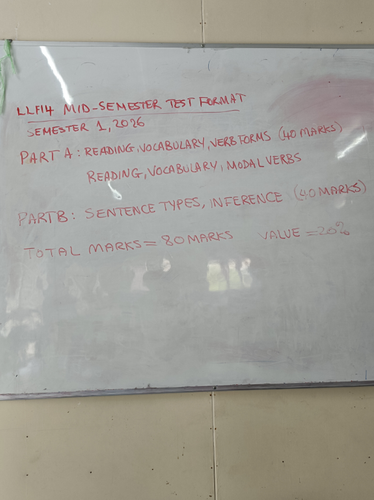 LLF14 MID-SEMESTER TEST FORMAT
SEMESTER 1, 2026
PART A: READING, VOCABULARY, VERB FORMS (40 MARKS)
READING, VOCABULARY, MODAL VERBS
PART B: SENTENCE TYPES, INFERENCE (40 MARKS)
TOTAL MARKS = 80 MARKS VALUE = 20%